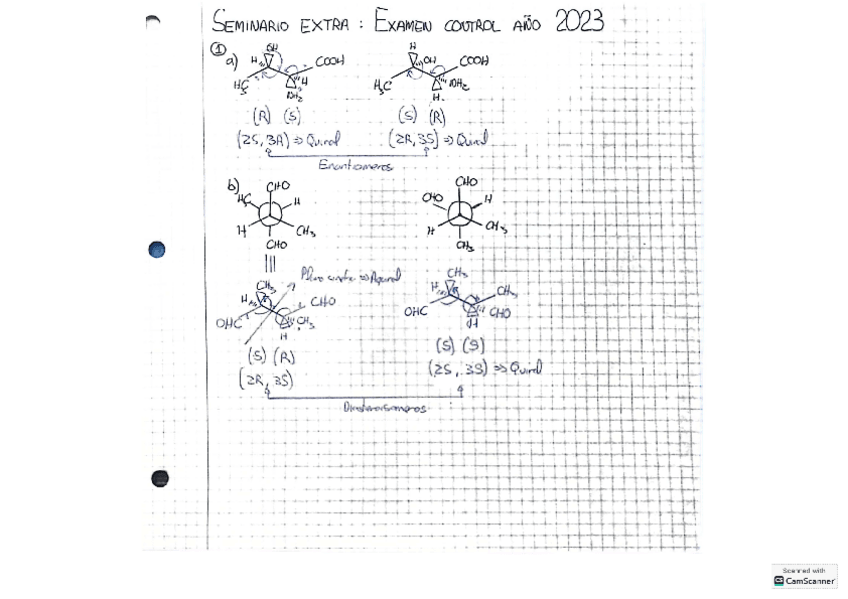 SEMINARIO EXTRA : EXAMEN CONTROL AÑO 2023
①
a) H OH COOH H₃C H NH₂
H OH COOH H₃C NH₂ H
(R) (S) (S) (R)
(2S, 3R) ⇒ Quiral (2R, 3S) ⇒ Quiral
Enantiomeros
b) CHO H₃C H H CH₃ CHO
CHO OHC H H CH₃ CH₃
Plano simetría ⇒ Aquiral
CH₃ H CHO OHC CH₃ H
CH₃ H CH₃ OHC CHO H
(S) (R) (S) (S)
(2R, 3S) (2S, 3S) ⇒ Quiral
Diastereoisomeros
Scanned with
CS CamScanner